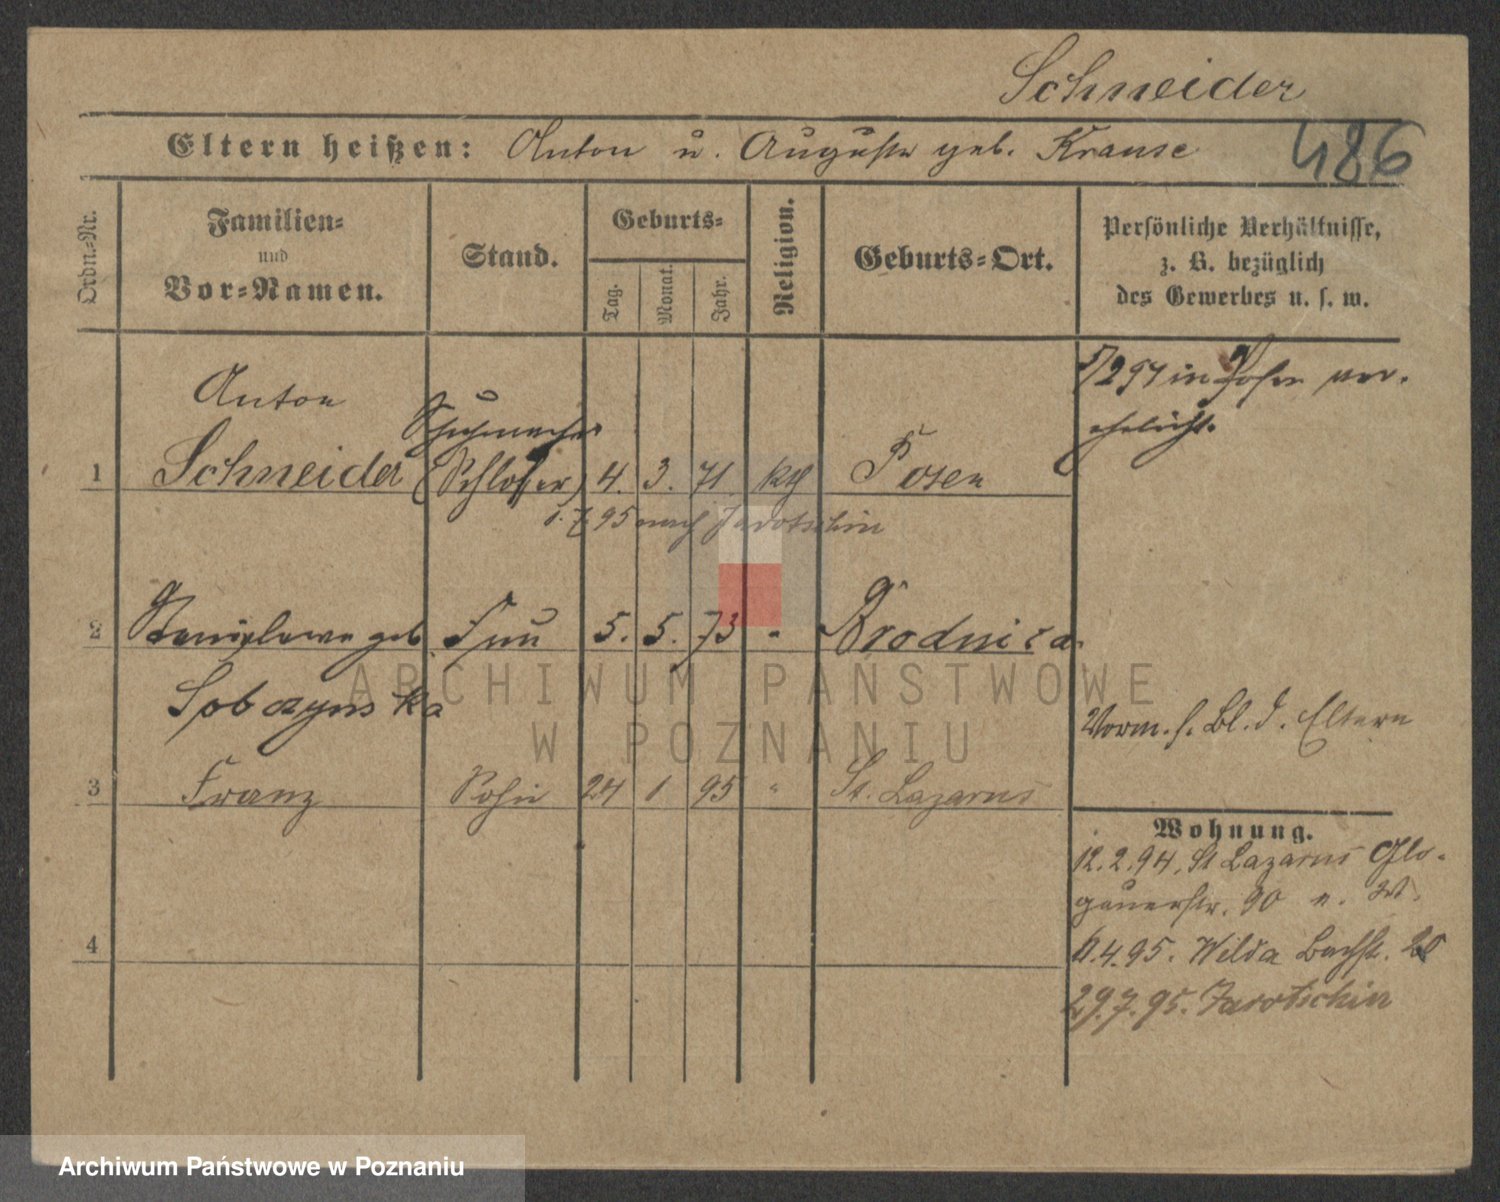 Schneider
Eltern heißen: Anton u. Auguste geb. Krause
486
Ordn.=Nr.
Familien=
und
Vor=Namen.
Stand.
Geburts=
Tag.
Monat.
Jahr.
Religion.
Geburts=Ort.
Persönliche Verhältnisse,
z. B. bezüglich
des Gewerbes u. s. w.
Anton
Schuhmacher
1 Schneider (Schlosser) 4. 3. 71. kth Posen
7/2 94 in Posen ver-
ehelicht.
95 nach Jarotschin
2 Stanislawa geb. Frau 5. 5. 73 " Brodnica
Sobczynska
Vorm. s. Bl. d. Eltern
3 Franz Sohn 24 1 95 " St. Lazarus
Wohnung.
12.2.94. St Lazarus Glo-
gauerstr. 90
4
4.95. Wilda Bachstr. 20
29.7.95. Jarotschin
ARCHIWUM PAŃSTWOWE
W POZNANIU
Archiwum Państwowe w Poznaniu